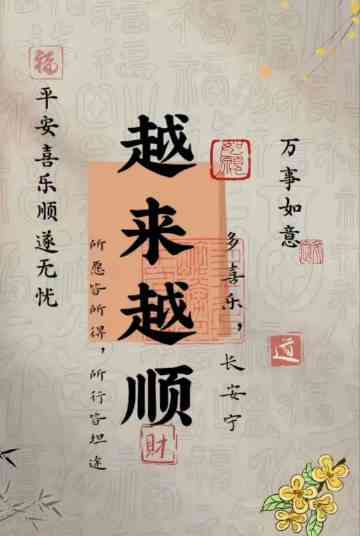 万事如意
多喜乐，长安宁
越来越顺
所愿皆所得，所行皆坦途
平安喜乐顺遂无忧
福
財